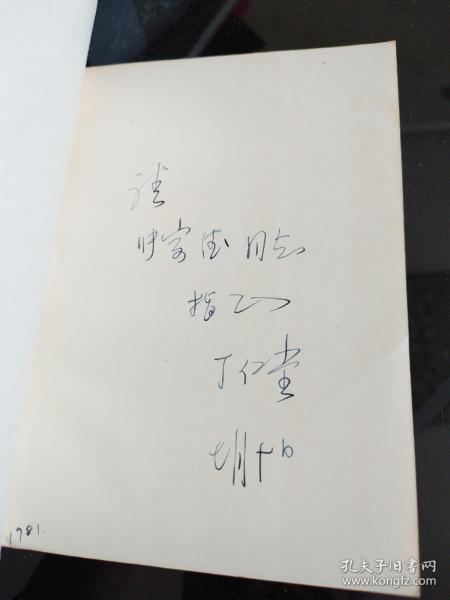 请
帅容德同志
指正
丁仁堂
七月十日
1981.
孔夫子旧书网
www.kongfz.com